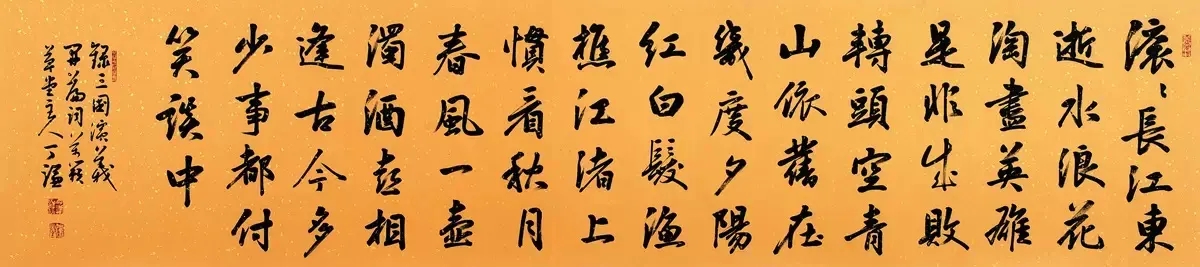 滾〻長江東
逝水浪花
淘盡英雄
是非成敗
轉頭空青
山依舊在
幾度夕陽
紅白髮漁
樵江渚上
慣看秋月
春風一壺
濁酒喜相
逢古今多
少事都付
笑談中
錄三國演義
開篇詞
堂主人丁謙